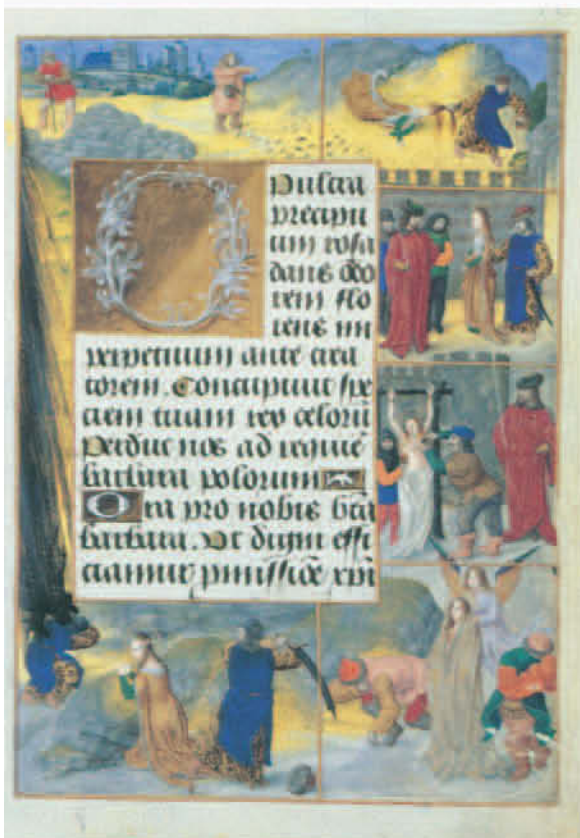 O Pulcra
precipu
um rosa
dans odo
rem flo
rens in
perpetuum ante crea
torem. Concupiuit spe
ciem tuam rex celorū
Perduc nos ad requiē
barbara polorum
Ora pro nobis bta
barbara. Ut digni effi
ciamur